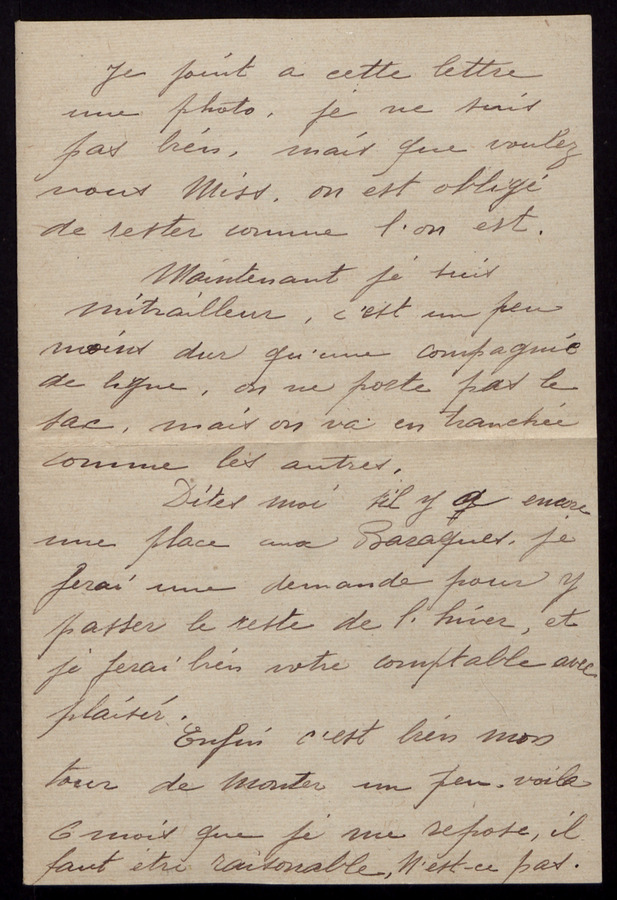 Je joint a cette lettre
une photo, je ne suis
pas bien, mais que voulez
vous Miss, on est obligé
de rester comme l'on est.
Maintenant je suis
mitrailleur, c'est un peu
moins dur qu'une compagnie
de ligne, on ne porte pas le
sac, mais on va en tranchée
comme les autres.
Dites moi s'il y a encore
une place aux Baraques, je
ferai une demande pour y
passer le reste de l'hiver, et
je ferai bien votre comptable avec
plaisir.
Enfin c'est bien mon
tour de monter un peu. voila
6 mois que je me repose, il
faut être raisonable, N'est-ce pas.